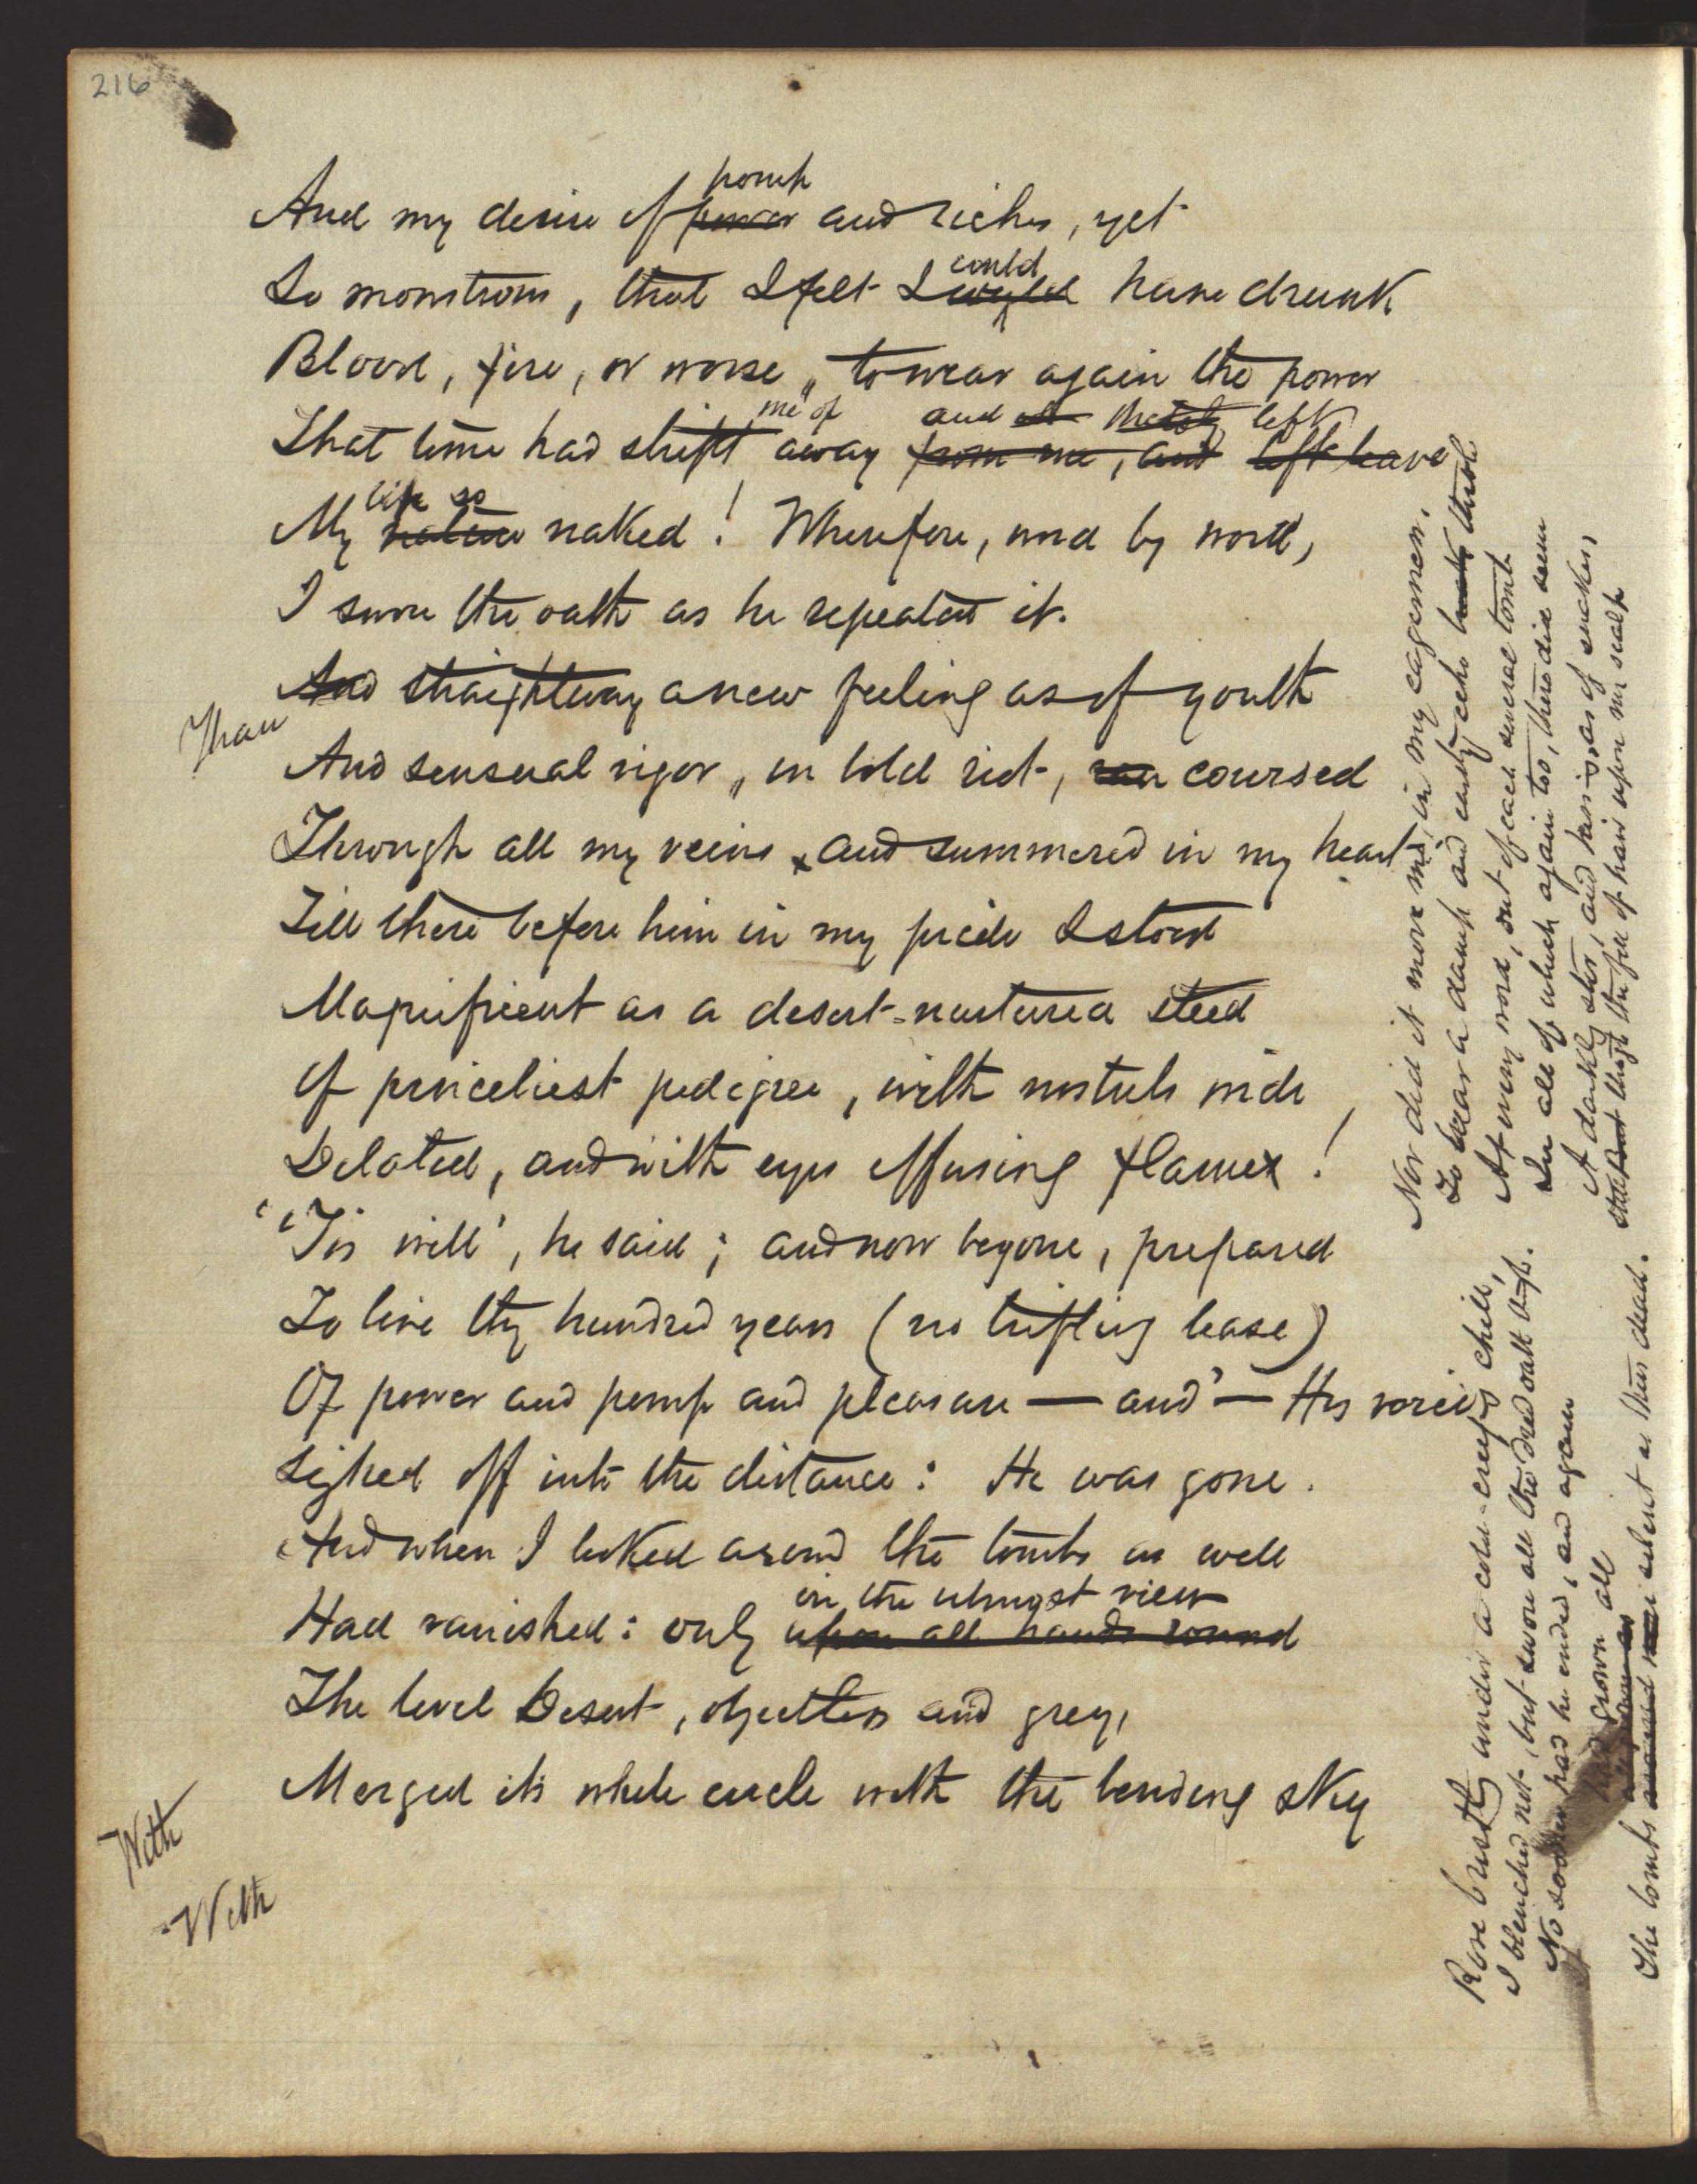 216
pomp
And my desire of power and riches, yet
could
So monstrous, that I felt I would have drunk
Blood, fire, or worse, to wear again the power
me of and left
That time had stript away from me, and left leave
life so
My nature naked! Wherefore, word by word,
I swore the oath as he repeated it.
And straightway a new feeling as of youth
Than
And sensual vigor, in bold riot, ran coursed
Through all my veins and summered in my heart
Till there before him in my pride I stood
Magnificent as a desert-nurtured steed
Of princeliest pedigree, with nostrils wide
Dilated, and with eyes effusing flame!
''Tis well', he said; and now begone, prepared
To live thy hundred years (no trifling lease)
Of power and pomp and pleasure — and' — His voice
Sighed off into the distance: He was gone.
And when I looked around the tombs as well
in the utmost view
Had vanished: only upon all hands round
The level Desert, objectless and grey,
Merged its whole circle with the bending sky
With
With
Nor did it move me, in my eagerness,
To hear a damp and earthy echo throb
At every word, out of each several tomb
In all of which again too, there did seem
A darkly stir, and hiss as of snakes,
though the fell of hair upon my scalp
Rose bristly under a cold-creeping chill,
I blenched not, but swore all the dread oath up.
No sooner had he ended, and again
had grown all
The tombs silent as their dead.